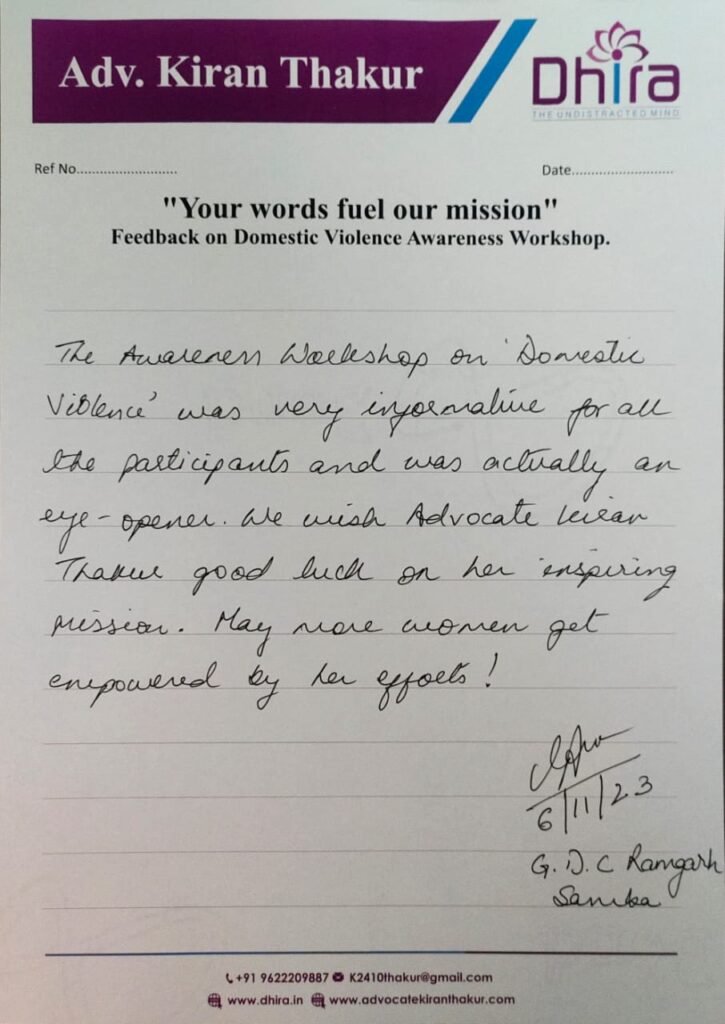 Adv. Kiran Thakur
Dhira
THE UNDISTRACTED MIND
Ref No.......................... Date..........................
"Your words fuel our mission"
Feedback on Domestic Violence Awareness Workshop.
The Awareness Workshop on 'Domestic
Violence' was very informative for all
the participants and was actually an
eye-opener. We wish Advocate Kiran
Thakur good luck on her inspiring
mission. May more women get
empowered by her efforts!
6/11/23
G. D. C Ramgarh
Samba
+91 9622209887 K2410thakur@gmail.com
www.dhira.in www.advocatekiranthakur.com